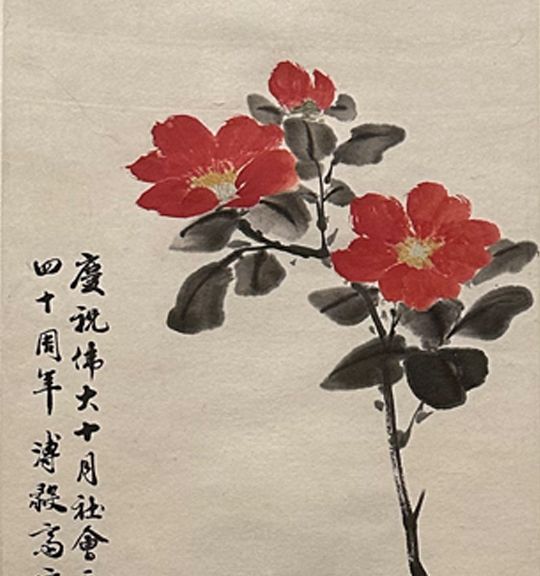 慶祝偉大十月社會
四十周年 溥毅斋